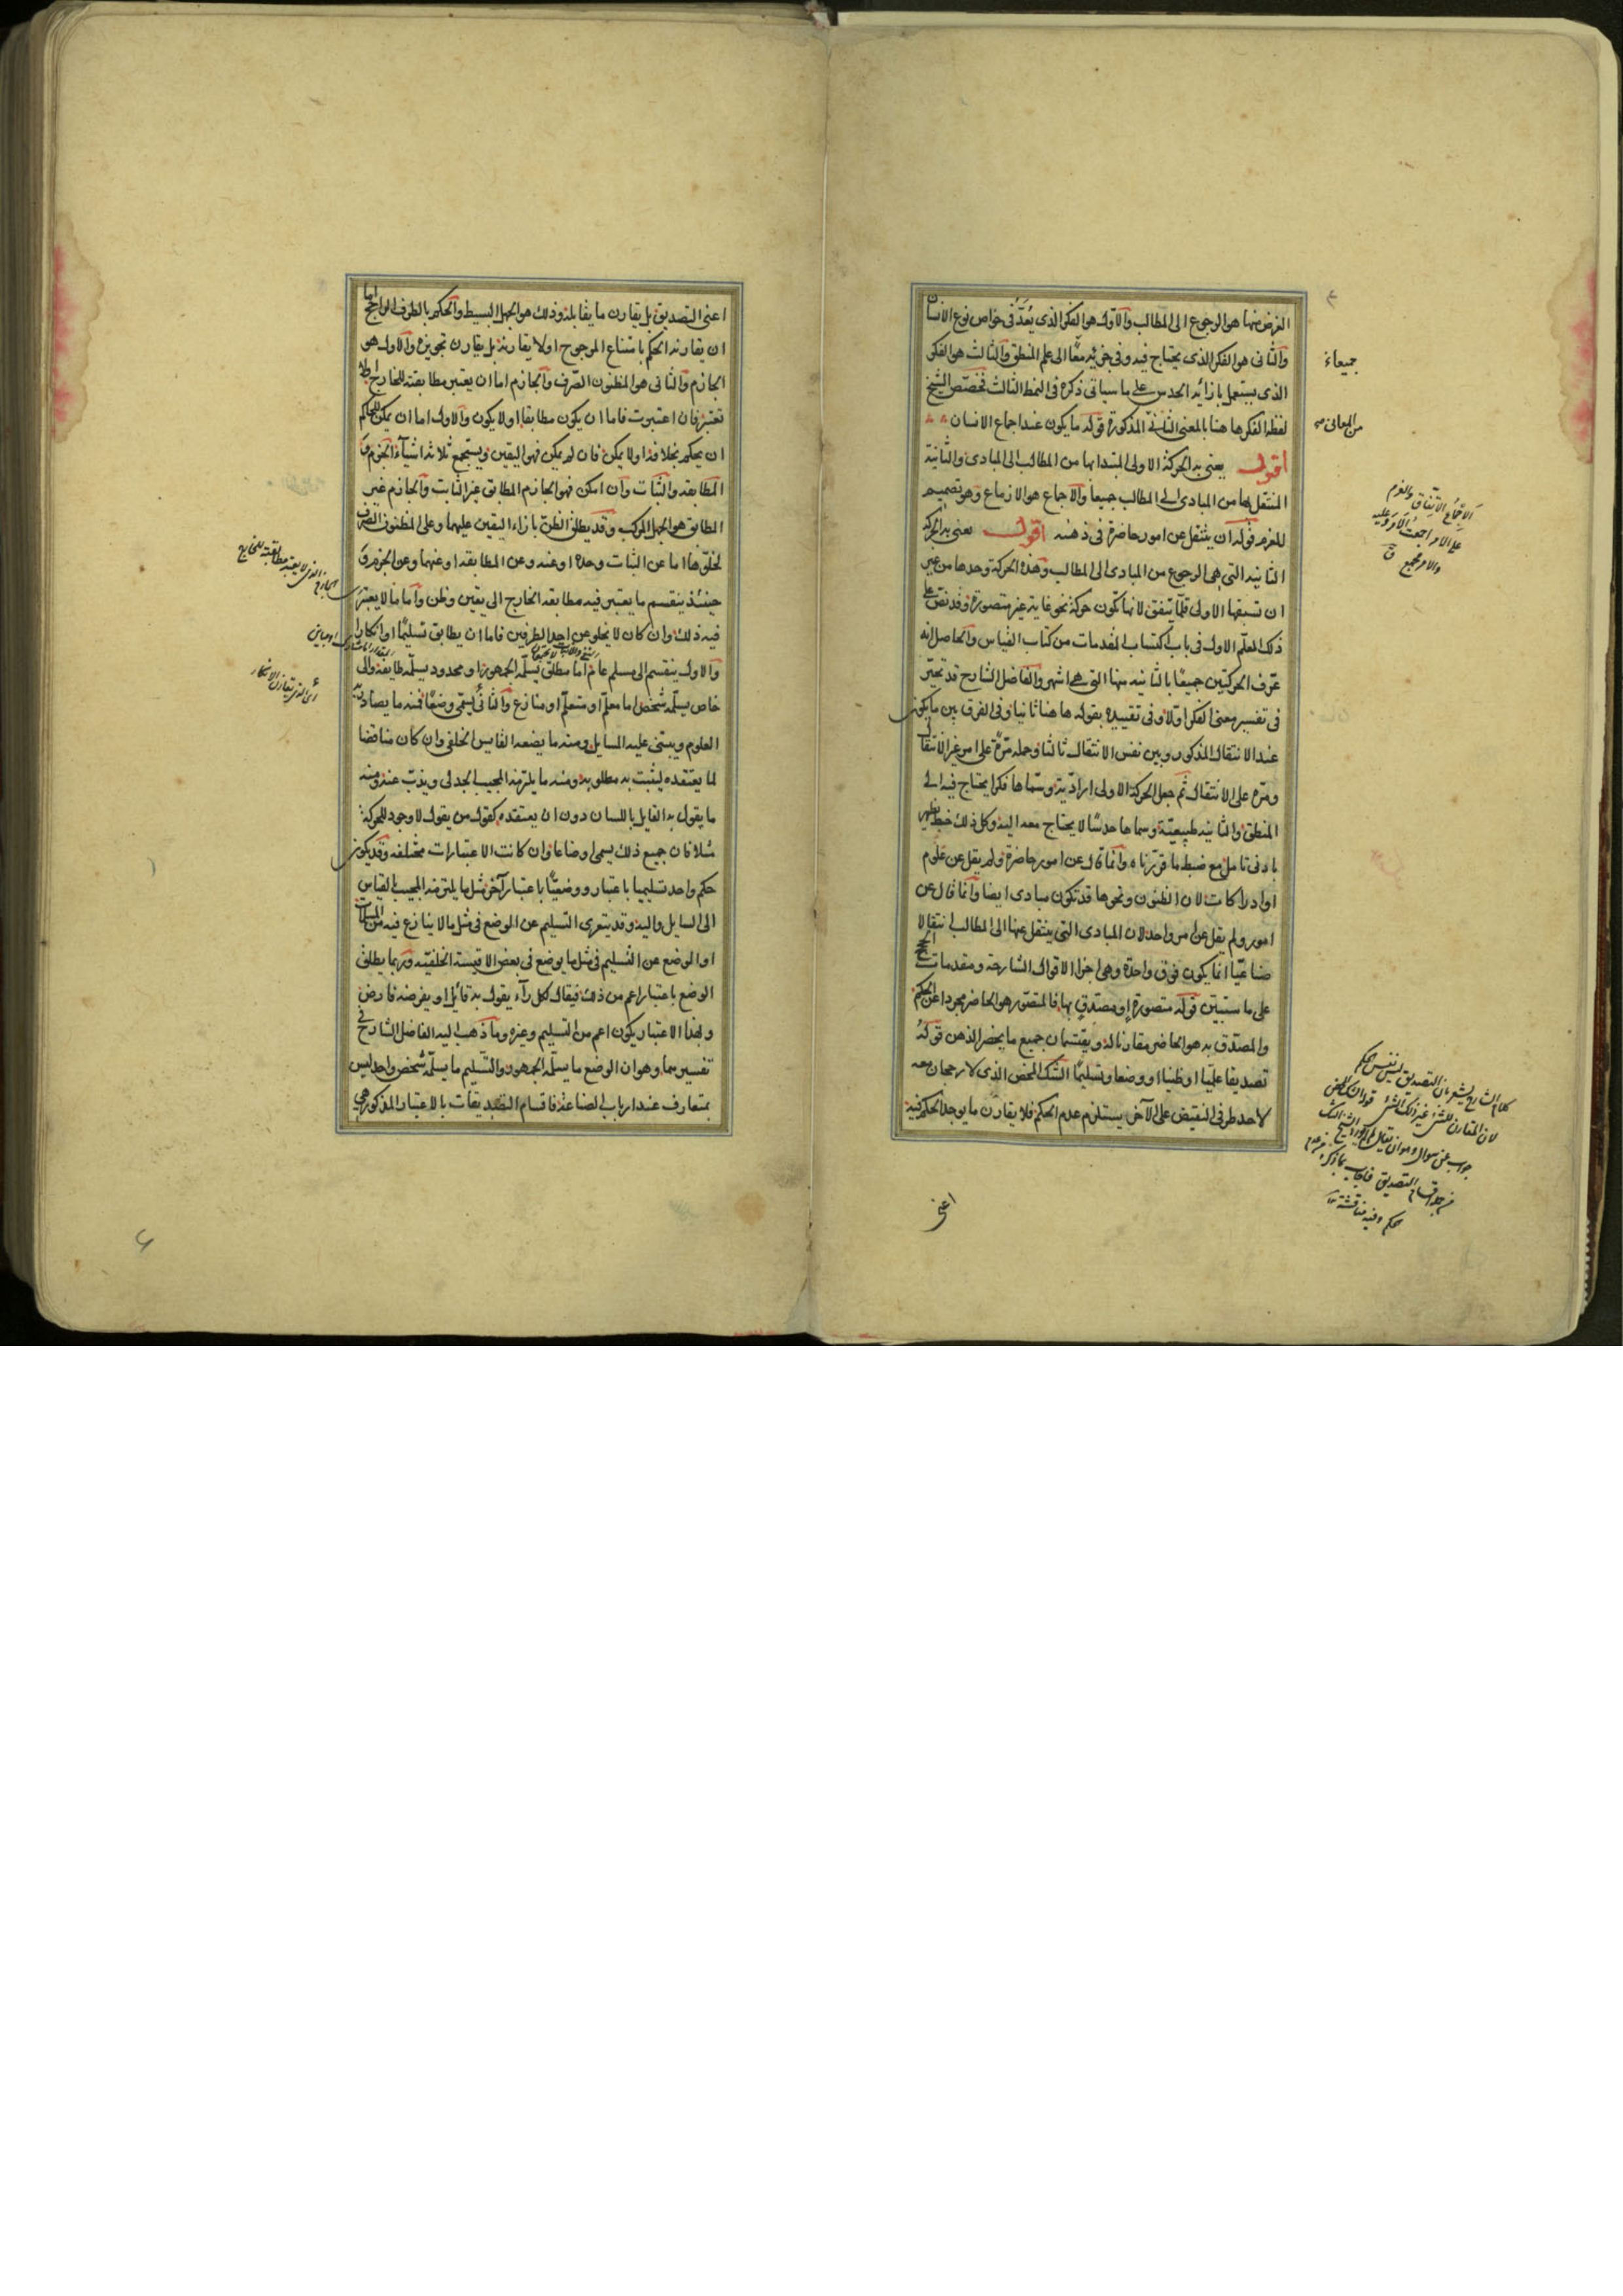 الغرض منها هو الرجوع الى المطالب والاول هو الفكر الذى يُعَدُّ فى خواص نوع الانسان
والثانى هو الفكر الذى يحتاج فيه وفى جزئيه معًا الى علم المنطق والثالث هو الفكر
الذى يستعمل بازائه الحدس على ما سياتى ذكره فى النمط الثالث فخصّص الشيخ
لفظة الفكر هاهنا بالمعنى الثانى المذكورة قوله ما يكون عند اجماع الانسان
اقول يعنى به الحركة الاولى المبتدا بها من المطالب الى المبادى والثانية
المنتقل بها من المبادى الى المطالب جميعا والاجماع هو الازماع وهو تصميم
العزم قوله ان ينتقل عن امور حاضرة فى ذهنه اقول يعنى به الحركة
الثانيه التى هى الرجوع من المبادى الى المطالب وهذه الحركة وحدها من غير
ان تسبقها الاولى قلّما يتفق لانها تكون حركة نحو غاية غير متصورة وقد نصّ على
ذلك المعلّم الاول فى باب اكتساب المقدمات من كتاب القياس والحاصل انه
عرّف الحركتين جميعًا بالثانيه منهما التى هى اشهر والفاضل الشارح قد تحيّر
فى تفسير معنى الفكر اولا وفى تقييده بقوله هاهنا ثانيا وفى الفرق بين ما يكون
عند الانتقال المذكور وبين نفس الانتقال ثالثا وحمله مرّة على امر غير الانتقال
ومرّه على الانتقال ثم جعل الحركة الاولى اراديّة وسمّاها فكرا يحتاج فيه الى
المنطق والثانيه طبيعيّة وسماها حدسًا لا يحتاج معه اليه وكل ذلك خبط يظهر
بادنى تامل مع ضبط ما قررناه وانما قال عن امور حاضرة ولم يقل عن علوم
او ادراكات لان الظنون ونحوها قد تكون مبادى ايضا وانما قال عن
امور ولم يقل عن امر واحد لان المبادى التى ينتقل عنها الى المطالب انتقالا
صناعيّا انما يكون فوق واحدة وهى اجزا الاقوال الشارحة ومقدمات الحجج
على ما سنبيّن قوله متصورة او مصدق بها فالمتصور هو الحاضر مجردا عن الحكم
والمصدق به هو الحاضر مقارنا له ويقتسمان جميع ما يحضر الذهن قوله
تصديقا علميّا او ظنيا او وضعا وتسليمًا الشك المحض الذى لا رجحان معه
لاحد طرفى النقيض على الآخر يستلزم عدم الحكم فلا يقارن ما يوجد الحكم فيه
جميعاء
من المعانى
الاجماع الاتفاق والعزم
على الامر اجمعت الامر وعليه
والامر مجمع
اعنى
اعنى التصديق بل يقارن ما يقابله وذلك هو الجهل البسيط والحكم بالطرف الراجح اما
ان يقارنه الحكم بامتناع المرجوح او لا يقارنه بل يقارن تجويزه والاول هو
الجازم والثانى هو المظنون الصرف والجازم اما ان يعتبر مطابقته للخارج او لا
تعتبر فان اعتبرت فاما ان يكون مطابقا او لا يكون والاول اما ان يمكن للحاكم
ان يحكم بخلافه او لا يمكن فان لم يمكن فهو اليقين ويستجمع ثلاثة اشياء الجزم و
المطابقه والثبات وان امكن فهو الجازم المطابق غير الثابت والجازم غير
المطابق هو الجهل المركب وقد يطلق الظن بازاء اليقين عليهما وعلى المظنون الصرف
لخلوّها اما عن الثبات وحده او عنه وعن المطابقه او عنهما وعن الجزم و
حينئذ ينقسم ما يعتبر فيه مطابقه الخارج الى يقين وظن واما ما لا يعتبر
فيه ذلك وان كان لا يخلو عن احد الطرفين فاما ان يقارن تسليمًا او انكارا
والاول ينقسم الى مسلم عام اما مطلق يسلّمه الجمهور او محدود يسلّمه طايفة والى
خاص يسلّمه شخص اما معلّم او متعلّم او منازع والثانى يُسمى وضعًا فمنه ما يصادر به
العلوم ويبتنى عليه المسايل ومنه ما يضعه القايس الخلفى وان كان مناقضا
لما يعتقده ليثبت به مطلوبه ومنه ما يلتزمه المجيب الجدلى ويذبّ عنه ومنه
ما يقول به القايل باللسان دون ان يعتقده كقول من يقول لا وجود للحركة
مثلا فان جميع ذلك يسمى اوضاعا وان كانت الاعتبارات مختلفه وقد يكون
حكم واحد تسليميا باعتبار ووضعيًّا باعتبار آخر مثل ما يلتزمه المجيب بالقياس
الى السايل واليه وقد يتعرى التسليم عن الوضع فى مثل ما لا ينازع فيه من المسلمات
او الوضع عن التسليم فى مثل ما يوضع فى بعض الاقيسة الخلفيّه وربما يطلق
الوضع باعتبار اعم من ذلك فيقال لكل رآء يقول به قائل او يفرضه فارض
وبهذا الاعتبار يكون اعم من التسليم وغيره وما ذهب اليه الفاضل الشارح فى
تفسيرهما وهو ان الوضع ما يسلّمه الجمهور والتسليم ما يسلّمه شخص واحد ليس
بمتعارف عند ارباب الصناعة فاقسام التصديقات بالاعتبار المذكور هى